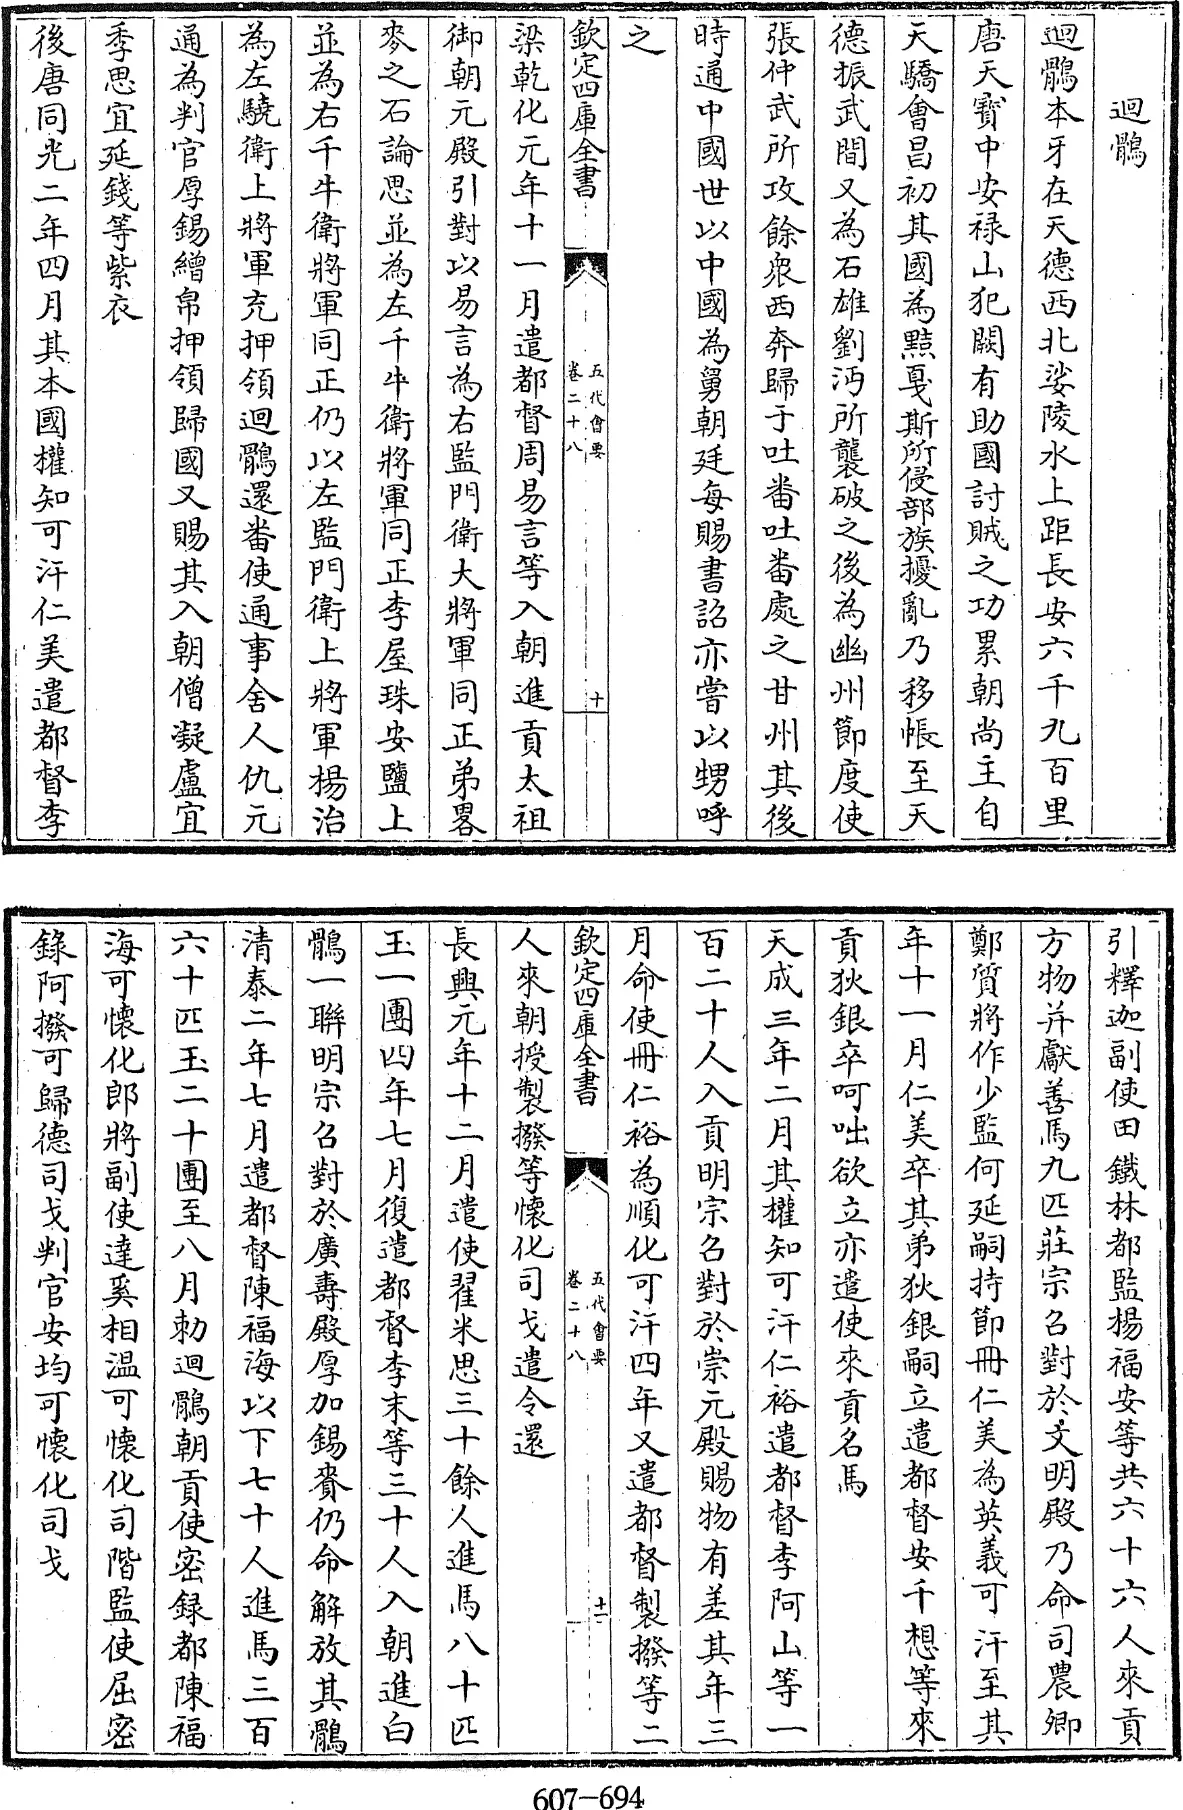 迴鶻
迴鶻本牙在天德西北娑陵水上距長安六千九百里
唐天寶中安祿山犯闕有助國討賊之功累朝尚主自
天驕會昌初其國為黠戛斯所侵部族擾亂乃移帳至天
德振武間又為石雄劉沔所襲破之後為幽州節度使
張仲武所攻餘衆西奔歸于吐番吐番處之甘州其後
時通中國世以中國為舅朝廷每賜書詔亦嘗以甥呼
之
欽定四庫全書
五代會要
卷二十八
十
梁乾化元年十一月遣都督周易言等入朝進貢太祖
御朝元殿引對以易言為右監門衛大將軍同正弟畧
麥之石論思並為左千牛衛將軍同正李屋珠安鹽上
並為右千牛衛將軍同正仍以左監門衛上將軍楊治
為左驍衛上將軍充押領迴鶻還番使通事舍人仇元
通為判官厚錫繒帛押領歸國又賜其入朝僧凝盧宜
季思宜延錢等紫衣
後唐同光二年四月其本國權知可汗仁美遣都督李
引釋迦副使田鐵林都監揚福安等共六十六人來貢
方物并獻善馬九匹莊宗召對於文明殿乃命司農卿
鄭質將作少監何延嗣持節冊仁美為英義可汗至其
年十一月仁美卒其弟狄銀嗣立遣都督安千想等來
貢狄銀卒呵咄欲立亦遣使來貢名馬
天成三年二月其權知可汗仁裕遣都督李阿山等一
百二十人入貢明宗召對於崇元殿賜物有差其年三
月命使冊仁裕為順化可汗四年又遣都督製撥等二
欽定四庫全書
五代會要
卷二十八
十一
人來朝授製撥等懷化司戈遣令還
長興元年十二月遣使翟米思三十餘人進馬八十匹
玉一團四年七月復遣都督李末等三十人入朝進白
鶻一聯明宗召對於廣壽殿厚加錫賚仍命解放其鶻
清泰二年七月遣都督陳福海以下七十人進馬三百
六十匹玉二十團至八月勅迴鶻朝貢使密録都陳福
海可懷化郎將副使達奚相温可懷化司階監使屈密
錄阿撥可歸德司戈判官安均可懷化司戈
607-694